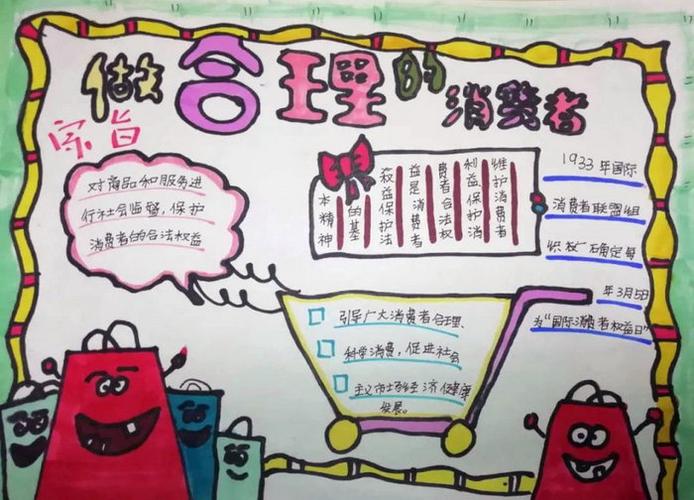 做合理的消费者
宗旨
对商品和服务进
行社会监督,保护
消费者的合法权益
维护消费者
利益、保护消
费者合法权
益是消费者
权益保护法
的基
本精神
1933年国际
消费者联盟组
织权广确定每
年3月5日
为“国际消费者权益日”
引导广大消费者合理、
科学消费，促进社会
主义市场经济健康
发展。